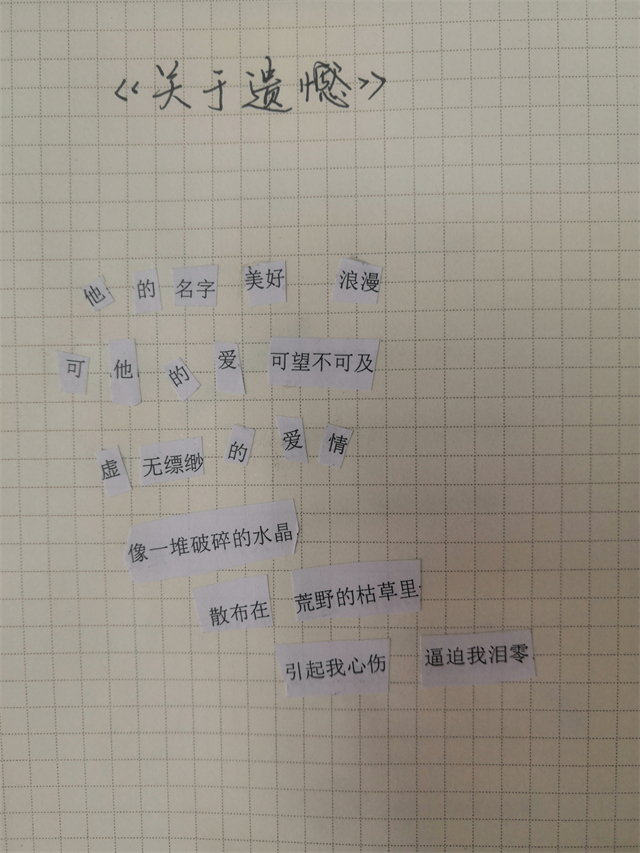 《关于遗憾》
他的名字美好 浪漫
可他的爱可望不可及
虚无缥缈的爱情
像一堆破碎的水晶
散布在 荒野的枯草里
引起我心伤 逼迫我泪零